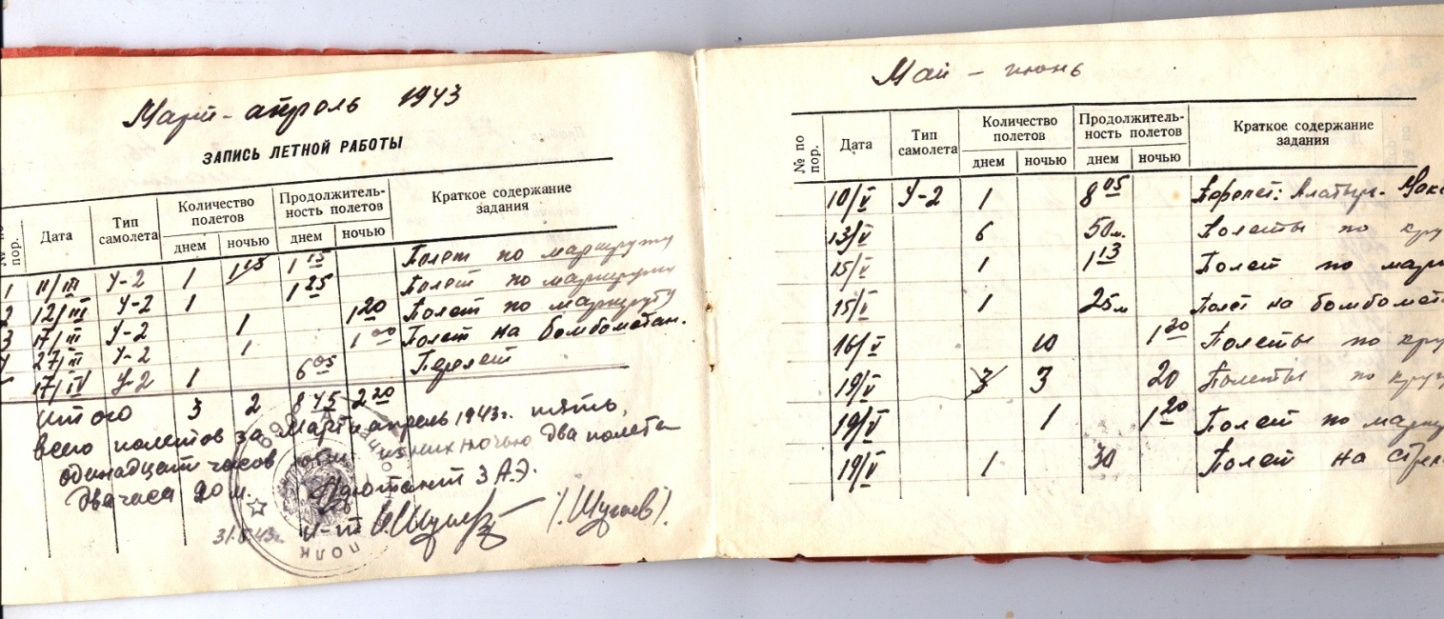 Март - апрель 1943
ЗАПИСЬ ЛЕТНОЙ РАБОТЫ
№ по пор. Дата Тип самолета Количество полетов Продолжительность полетов Краткое содержание задания
днем ночью днем ночью
1 11/III У-2 1 1 15 1 15 Полет по маршруту
2 12/III У-2 1 1 25 Полет по маршруту
3 17/III У-2 1 1 20 Полет по маршруту
4 27/III У-2 1 1 00 Полет на бомбометан.
17/IV У-2 1 6 05 Перелет
Итого 3 2 8 45 2 20
Всего полетов за март и апрель 1943г. пять,
одинадцат часов из них ночью два полета
два часа 20 м. Адютант 3 А.Э.
31.5.43г. /Шугаев/.
ПОЛК
Май - июнь
№ по пор. Дата Тип самолета Количество полетов Продолжительность полетов Краткое содержание задания
днем ночью днем ночью
10/V У-2 1 8 05 Перелет: Алатырь-
13/V 6 50м. Полеты по кру
15/V 1 1 13 Полет по марш
15/V 1 25м Полет на бомбомет
16/V 10 1 20 Полеты по кру
19/V 3 3 20 Полеты по круг
19/V 1 1 20 Полет по маршр
19/V 1 30 Полет на стрел